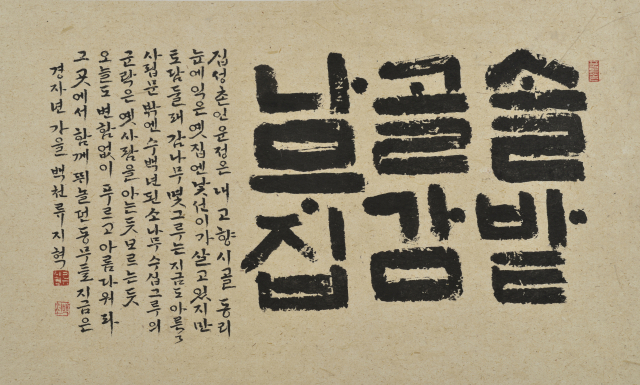 솔밭
골감
남집
집성촌인 운정은 내 고향 시골 동리
눈에 익은 옛집엔 낯선이가 살고 있지만
토담 둘레 감나무 몇 그루는 지금도
사립문 밖엔 수백년된 소나무 수십그루의
군락은 옛사람을 아는듯 모르는듯
오늘도 변함없이 푸르고 아름다워라
그 곳에서 함께 뛰놀던 동무들 지금은
경자년 가을 백천 류지혁